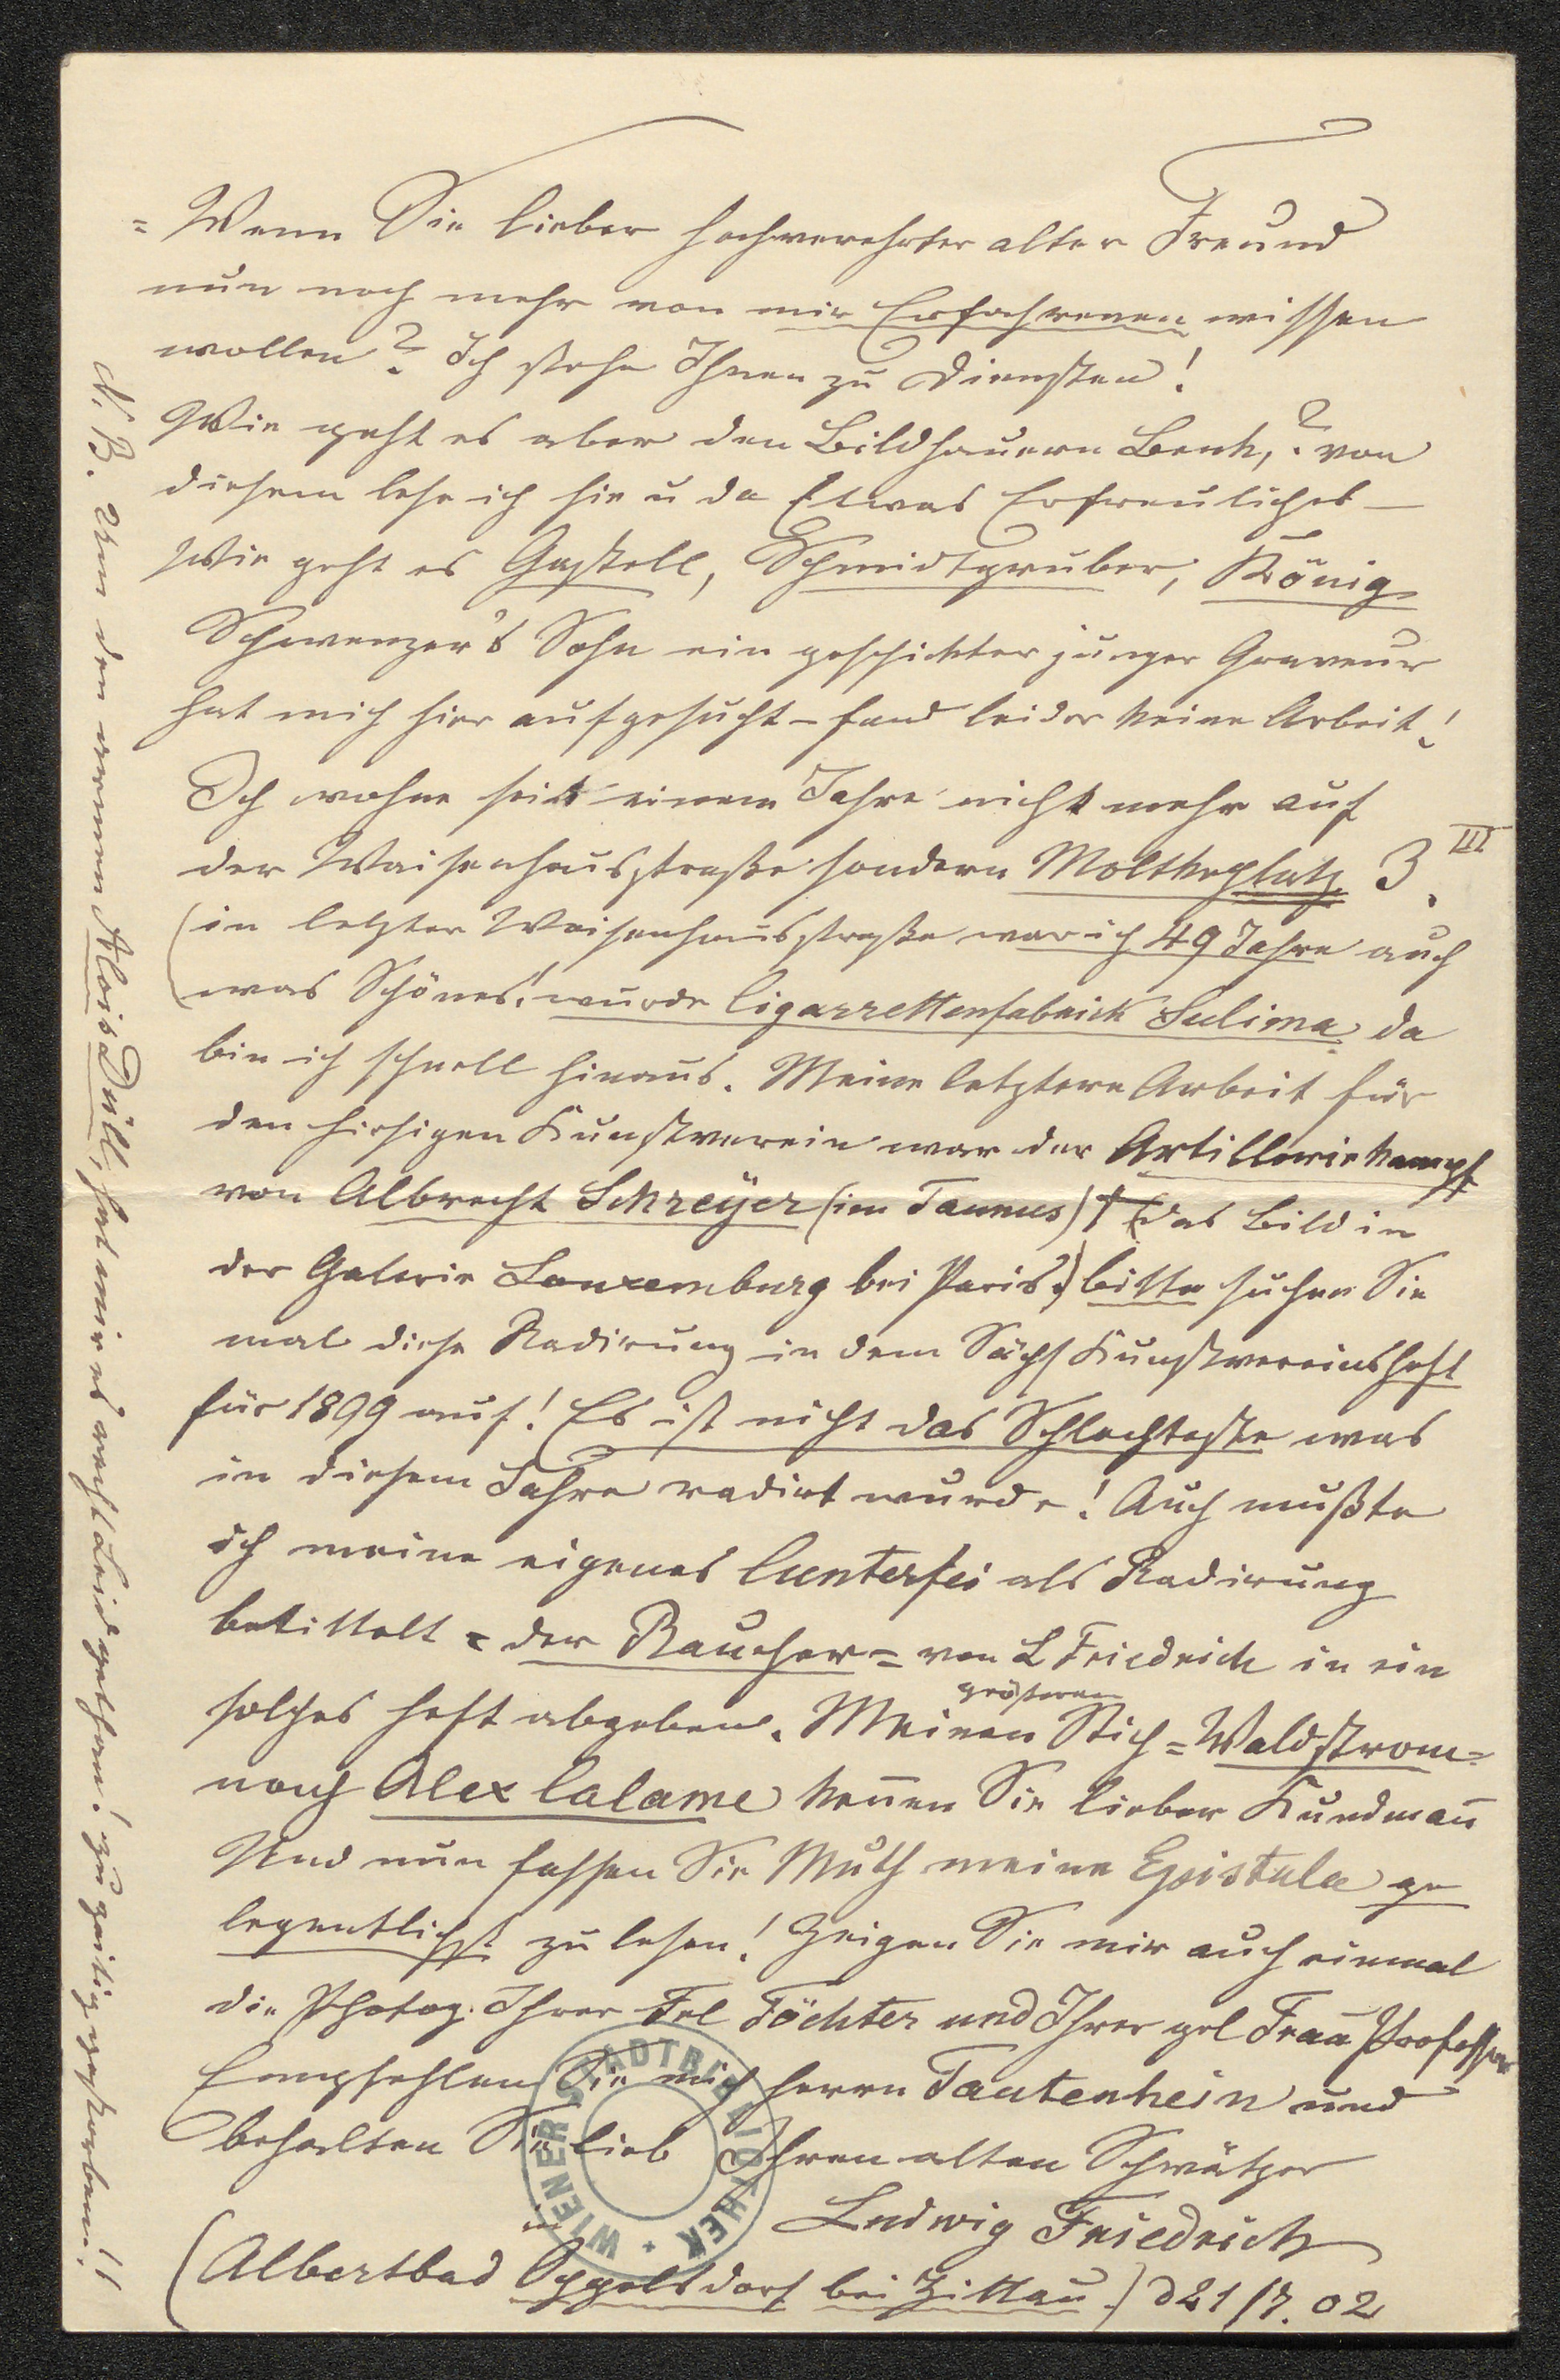 = Wenn Sie lieber hochverehrter alter Freund
nun noch mehr von mir Erfahrenen wissen
wollen? Ich stehe Ihnen zu Diensten!
Wie geht es aber den Bildhauern Benk,? von
diesem lese ich hie u da Etwas Erfreuliches —
Wie geht es Gastell, Schmidtgruber, König
Schwenzer's Sohn ein geschickter junger Graveur
hat mich hier aufgesucht – fand leider keine Arbeit!
Ich wohne seit einem Jahre nicht mehr auf
der Waisenhausstraße sondern Moltkeplatz 3. III
(in letzter Waisenhausstraße war ich 49 Jahre auch
was Schönes! wurde Cigarrettenfabrick Sulima da
bin ich schnell hinaus. Meine letztere Arbeit für
den hiesigen Kunstverein war der Artilleriekampf
von Albrecht Schreÿer (im Taunus) † (das Bild in
der Galerie Louxemburg bei Paris.) bitte suchen Sie
mal diese Radirung in dem Sächs Kunstvereinsheft
für 1899 auf! Es ist nicht das Schlechteste was
in diesem Jahre radirt wurde! Auch mußte
ich meine eigenes Cunterfei als Radirung
betittelt = der Raucher = von L Friedrich in ein
solches Heft abgeben. Meinen größeren Stich = Waldstrom =
nach Alex Calame kennen Sie lieber Kundmann
Und nun fassen Sie Muth meine Epistula ge
legentlichst zu lesen! Zeigen Sie mir auch einmal
die Photog. Ihrer Frl Töchter und Ihrer gel Frau Professor
Empfehlen Sie mich Herrn Tautenhein und
behalten Sie lieb Ihren alten Schwätzer
Ludwig Friedrich
(Albertbad in Oppelsdorf bei Zittau.) d 21/7. 02
N. B. Um den armen Alois Düll, hat mir es recht Leid gethan! zu zeitig gestorben!!
WIENER STADTBIBLIOTHEK